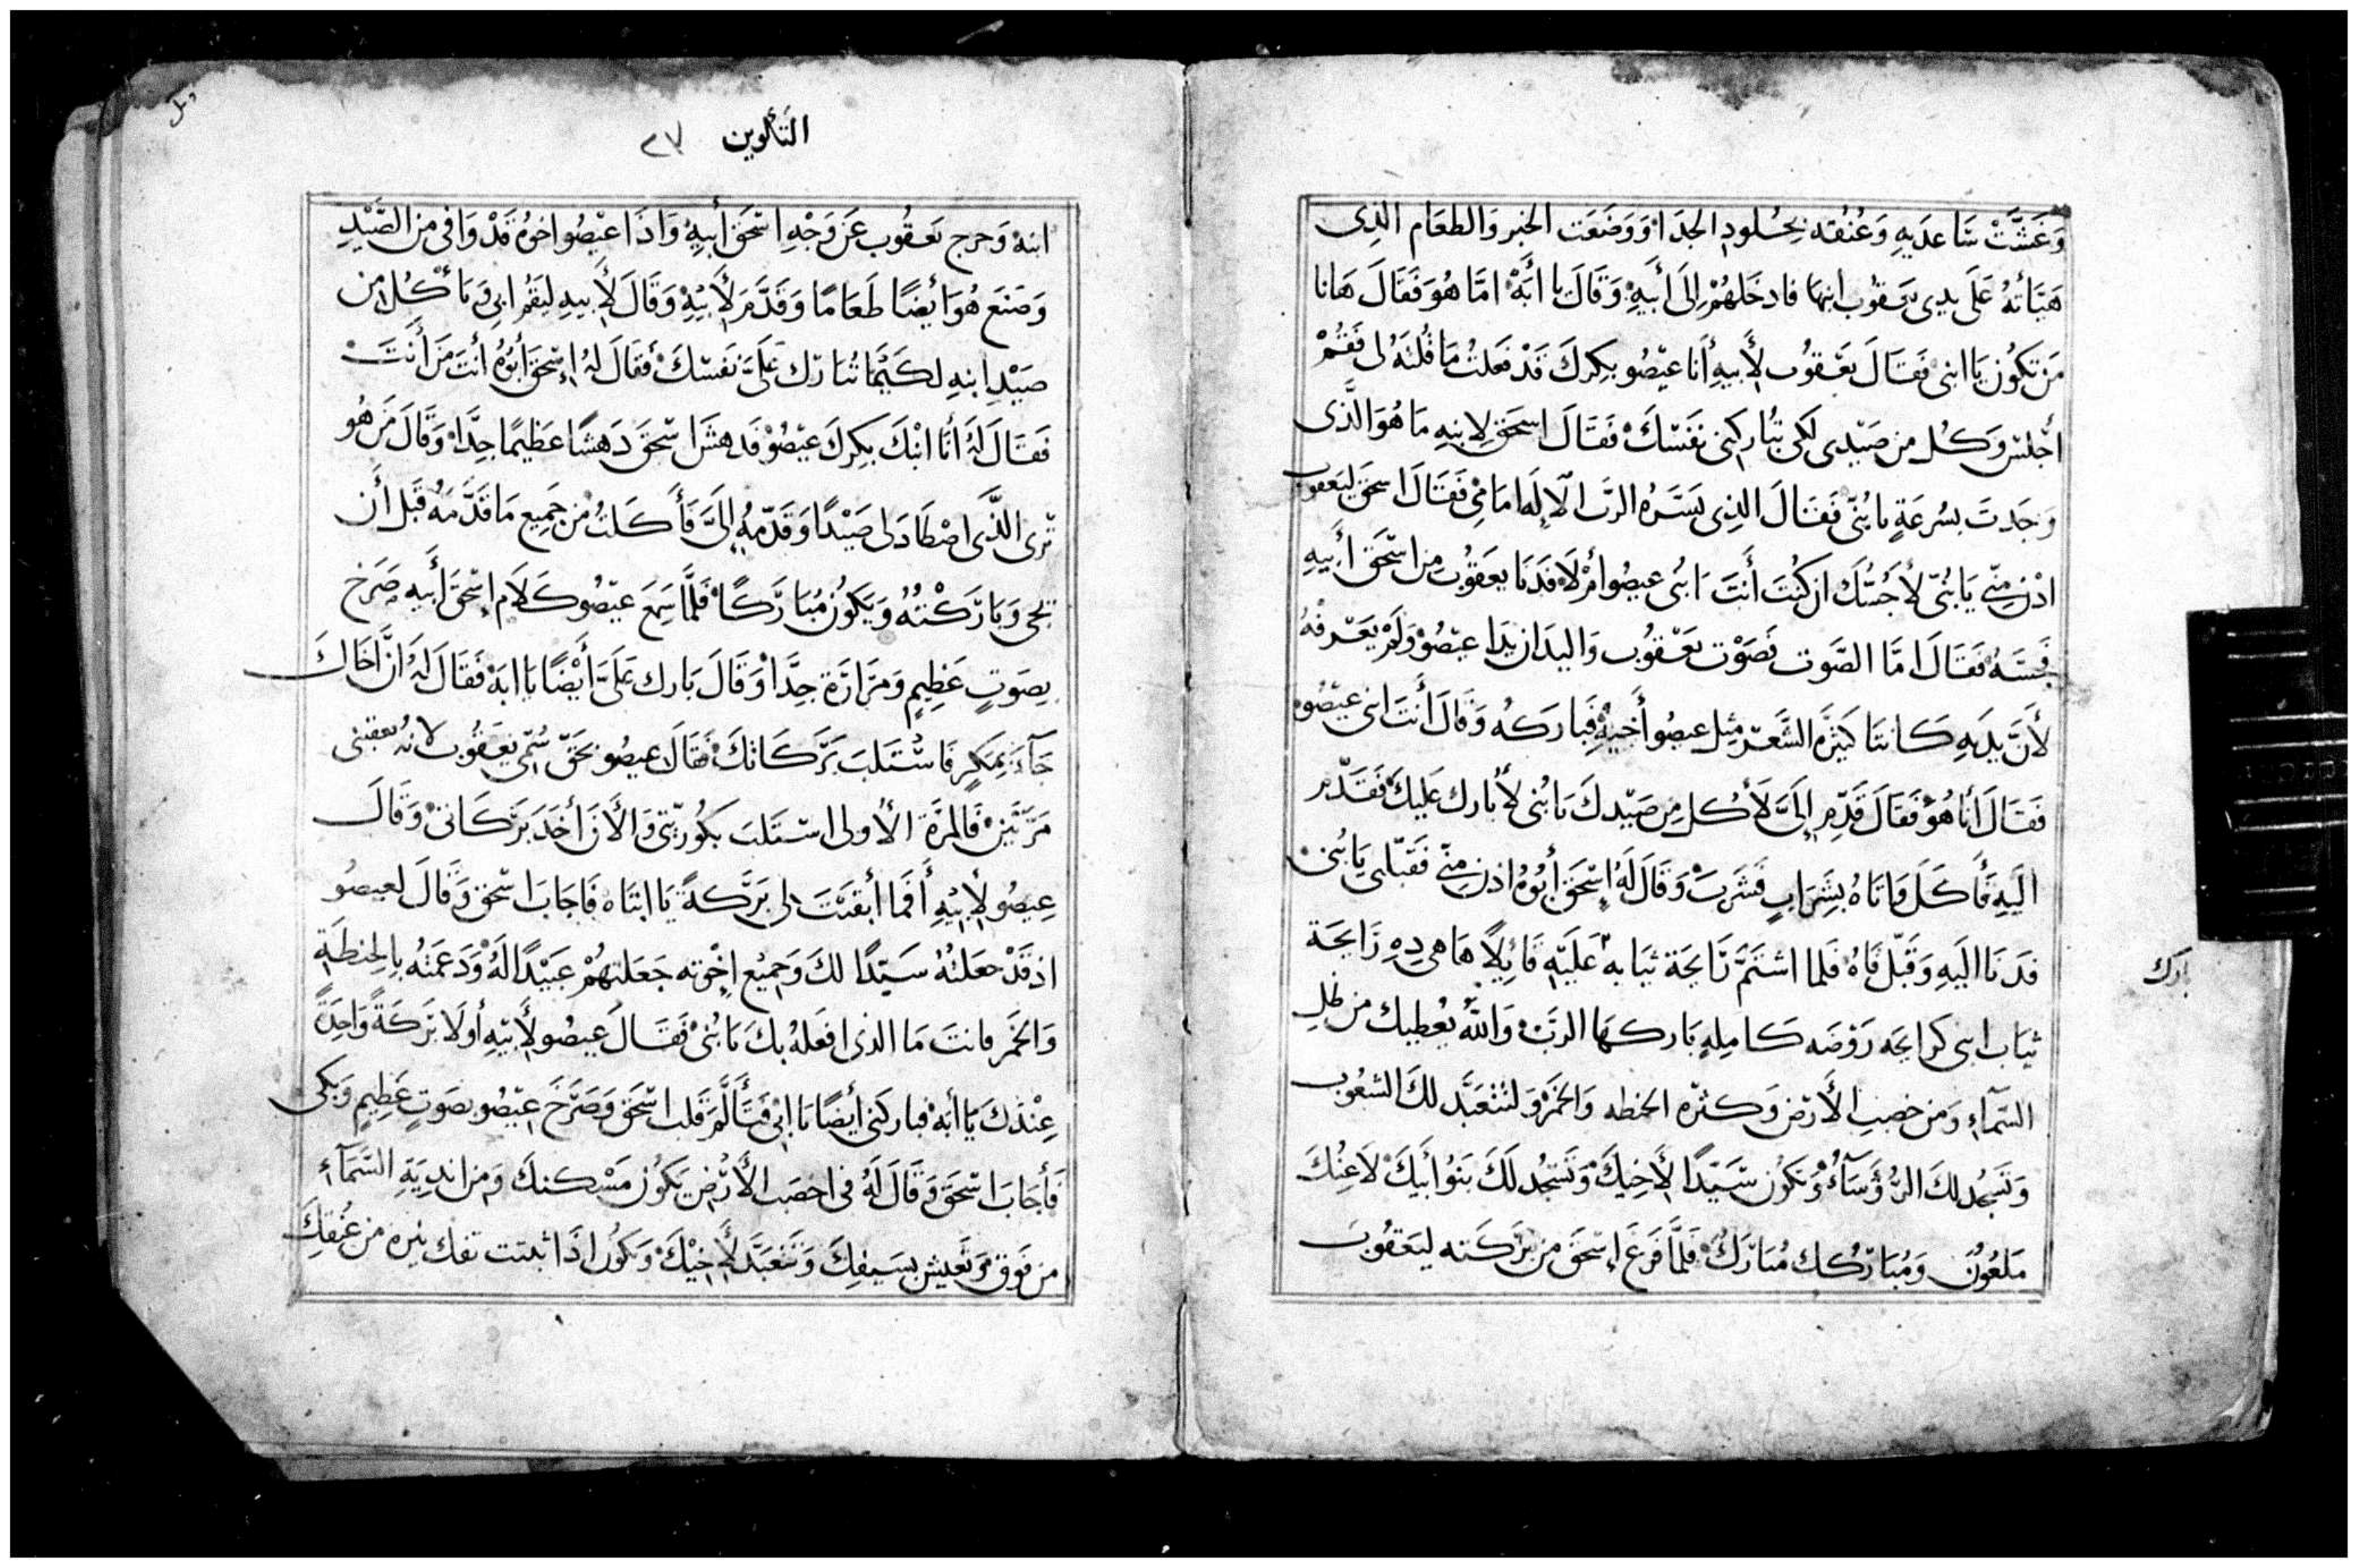 وَغَشَّتْ سَاعِدَيهِ وَعُنُقه بِجُلُودِ الجدَاءْ وَوَضَعَت الخبز وَالطعَام الذِى
هَيَّأتهُ عَلَى يدى يَعقُوب ابنها فادخَلهُمْ إلَى أَبيهِ وَقَالَ يا أَبَهْ امَّا هُوَ فَقَالَ هَانا
مَن تكُون يَا ابنى فَقَالَ يَعْقُوب لأَبيهِ أَنا عيْصُو بكِركَ قَدْ فَعلتُ مَا قُلتَهُ لى فَقُمْ
اجْلسْ وَكُل من صَيْدِى لكى تُبَاركنِى نفَسْكَ فَقَالَ اسحَق لابنهِ مَا هُوَ الَّذى
وَجَدتَ بسُرعَةٍ يا بُنَىّ فَقَالَ الذِى يَسَّرَهُ الربّ الالَه امَامِى فَقَالَ اسحَق ليَعقوب
ادْن مِنّى يَا بُنَىّ لأَجُسَّكَ ان كُنتَ أَنتَ ابنى عيصُو أمْ لَا فَدَنَا يعَقُوب مِن اسْحَقَ أَبيهِ
فجَسَّهُ فَقَالَ امَّا الصَّوت فصَوْت يَعْقُوب وَاليدَان يَدَا عيْصُوْ وَلَمْ يَعْرفْهُ
لأَنَّ يدَيهِ كَانتَا كثِيرَة الشَّعَرْ مِثل عيصُو أَخيهِ فبَاركهُ وَقَالَ أَنتَ ابنى عيْصُو
فَقَالَ أنا هُوْ فَقَالَ قَدِّم إلىَّ لأكل مِن صَيْدكَ يَا بُنى لأُبارك عَليكَ فَقَدّم
الَيهِ فَأَكَلَ وَاتاهُ بشَرَابٍ فَشَربَ وَقَالَ لَهُ إسْحَق أبُوهُ ادن مِنّى فَقبّلنى يَا بُنى
فَدَنا اليَهِ وَقَبّل فاهُ فَلما اشتَمَّ رَايحَة ثيَابه عَليَهِ قَائِلاً هَا هى دِهِ رَايحَة
بارك
ثيَاب ابنى كرايحَه رَوْضَه كَامِلهٍ بَاركهَا الربّ وَاللهُ يُعطيك من طلِ
السّمآءِ وَمن خصبِ الأَرضِ وَكثرَه الحنطه وَالخَمْر وَلتتعَبَّد لكَ الشعُوب
وَتسَجُد لكَ الرُؤَسَآءُ وَتكُون سَيّدًا لأَخِيكَ وَتَسجُد لَكَ بَنُوا أَبيكَ لَاعِنُكَ
مَلعُوُن وَمُبَارِكك مُبَارَكْ فَلَمَّا فَرَغ إسْحَق مِن بَرَكَته ليَعقُوب
التكوين ٢٧
ابنهْ وَخرج يَعقُوب عَن وَجْهِ اسْحَق أَبيهِ وَاذَا عيْصُو اخوُهُ قَدْ وَافى من الصَّيْدِ
وَصَنَعَ هُوَ أيْضًا طَعَامًا وَقَدَّمَ لأَبيْهِ وَقَالَ لأَبيهِ ليَقُم ابى وَيَأكُل من
صَيْدِ ابنهِ لكيْمَا تُبَارك عَلَىَّ نَفَسْكَ فَقَالَ لهُ إسْحَق أبُوهُ أَنتَ مَن أَنتَ
فَقَالَ لَهُ أنَا ابْنكَ بِكرِكَ عيْصُوْ فَدهشَ اسْحَق دَهشًا عَظِيمًا جِدًّا وَقَالَ مَن هُو
تُرى الذَّى اصْطَادَ لى صَيْدًا وَقَدّمهُ إلىَّ فَأَكَلتُ من جَمِيع مَا قَدَّمَهُ قَبَل أَن
تجى وَبَارَكْتُهُ وَيَكونُ مُبَارَكًا فَلمَّا سَمِعَ عيْصُو كَلَام إسْحَق أَبيهِ صَرَخ
بِصَوتٍ عَظِيمٍ وَمَرَارَة جِدًّا وَقَالَ بَارك عَلَىَّ أَيْضًا يا ابَهْ فَقَالَ لهُ انَّ أخَاكَ
جَآءَ بمَكرٍ فَاسْتلَبَ بَرَكَاتكَ فقَالَ عيصُو بحَقّ سُمّى يَعقُوب لانهُ تعقبنى
مَرَّتَيْن فَالمرَّة الأُولى استَلبَ بكُوريّتى وَالأَنَ أَخَدَ بَرَكَاتى وَقَالَ
عِيصُو لأَبيهِ أَفَمَا أبقَيْتَ لى بَرَكةً يَا ابتَاه فَاجَابَ اسْحَق وَقَالَ لعيصُو
اذ قَدْ جعَلتهُ سَيّدًا لكَ وَجَميْع اخْوته جَعَلتهُمْ عَبيْدًا لَهُ وَدَعمَتهُ بِالحِنطَةِ
وَالخَمْر فانتَ مَا الذى افعَلهُ بكَ يَا بُنىْ فَقَالَ عيصُو لأَبيْهِ أولَا بَركَةً وَاحِدَةً
عِنْدكَ يَا أبَهْ فباركنى أيضًا يَا ابىْ فَتَأَلَّمَ قَلب اسْحَق وَصَرَخَ عيْصُو بصَوتٍ عَظِيمٍ وَبكى
فَأَجَابَ اسْحَق وَقَالَ لَهُ فى اخصَب الأَرْضِ يَكُون مَسْكنكَ وَمن اندِيَةِ السَّمَآءِ
من فَوق وَتَعَيش بسَيفكَ وَتتعَبَّد لأَخيْكَ وَيكُون اذَا تفك نيره من عُنُقكَ